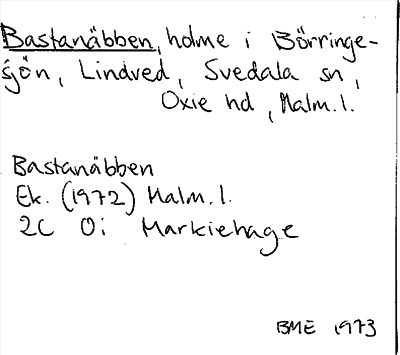 Bastanäbben, holme i Börringe-
sjön, Lindved, Svedala sn,
Oxie hd, Malm.l.
Bastanäbben
Ek. (1972) Malm.l.
2C 0i Markiehage
BME 1973